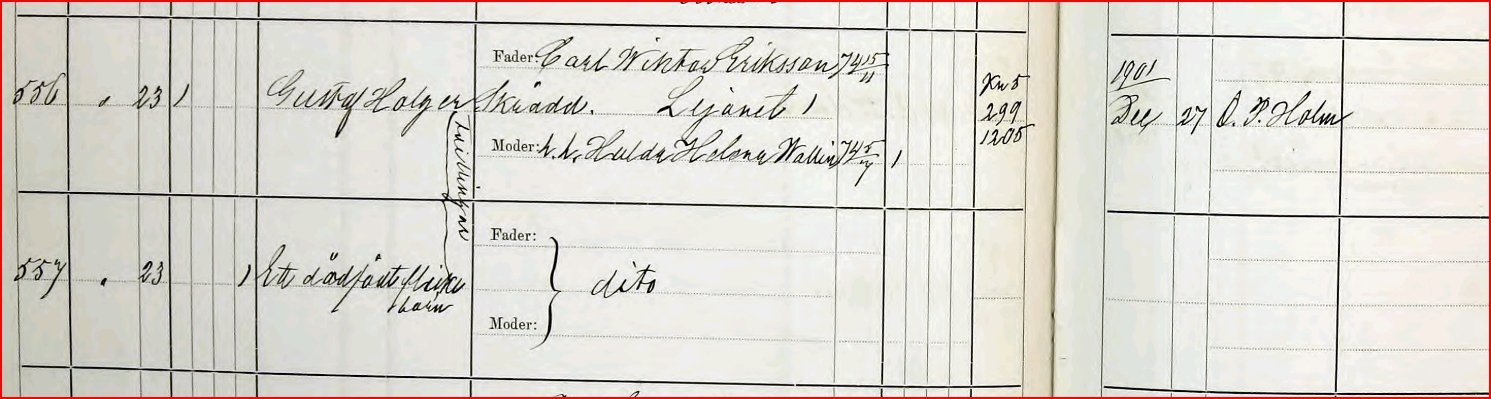 Fader: Carl Wiktor Eriksson 74 15/11
556 " 23 1 Gustaf Holger Skrädd. Lejonet 1 Kv 5 299 1205
Moder: h. h. Hulda Helena Wallin 74 5/7 1
Tvillingar
1901
Dec 27 O. P. Holm
Fader:
557 " 23 1 Ett dödfödt flicke dito
barn
Moder: